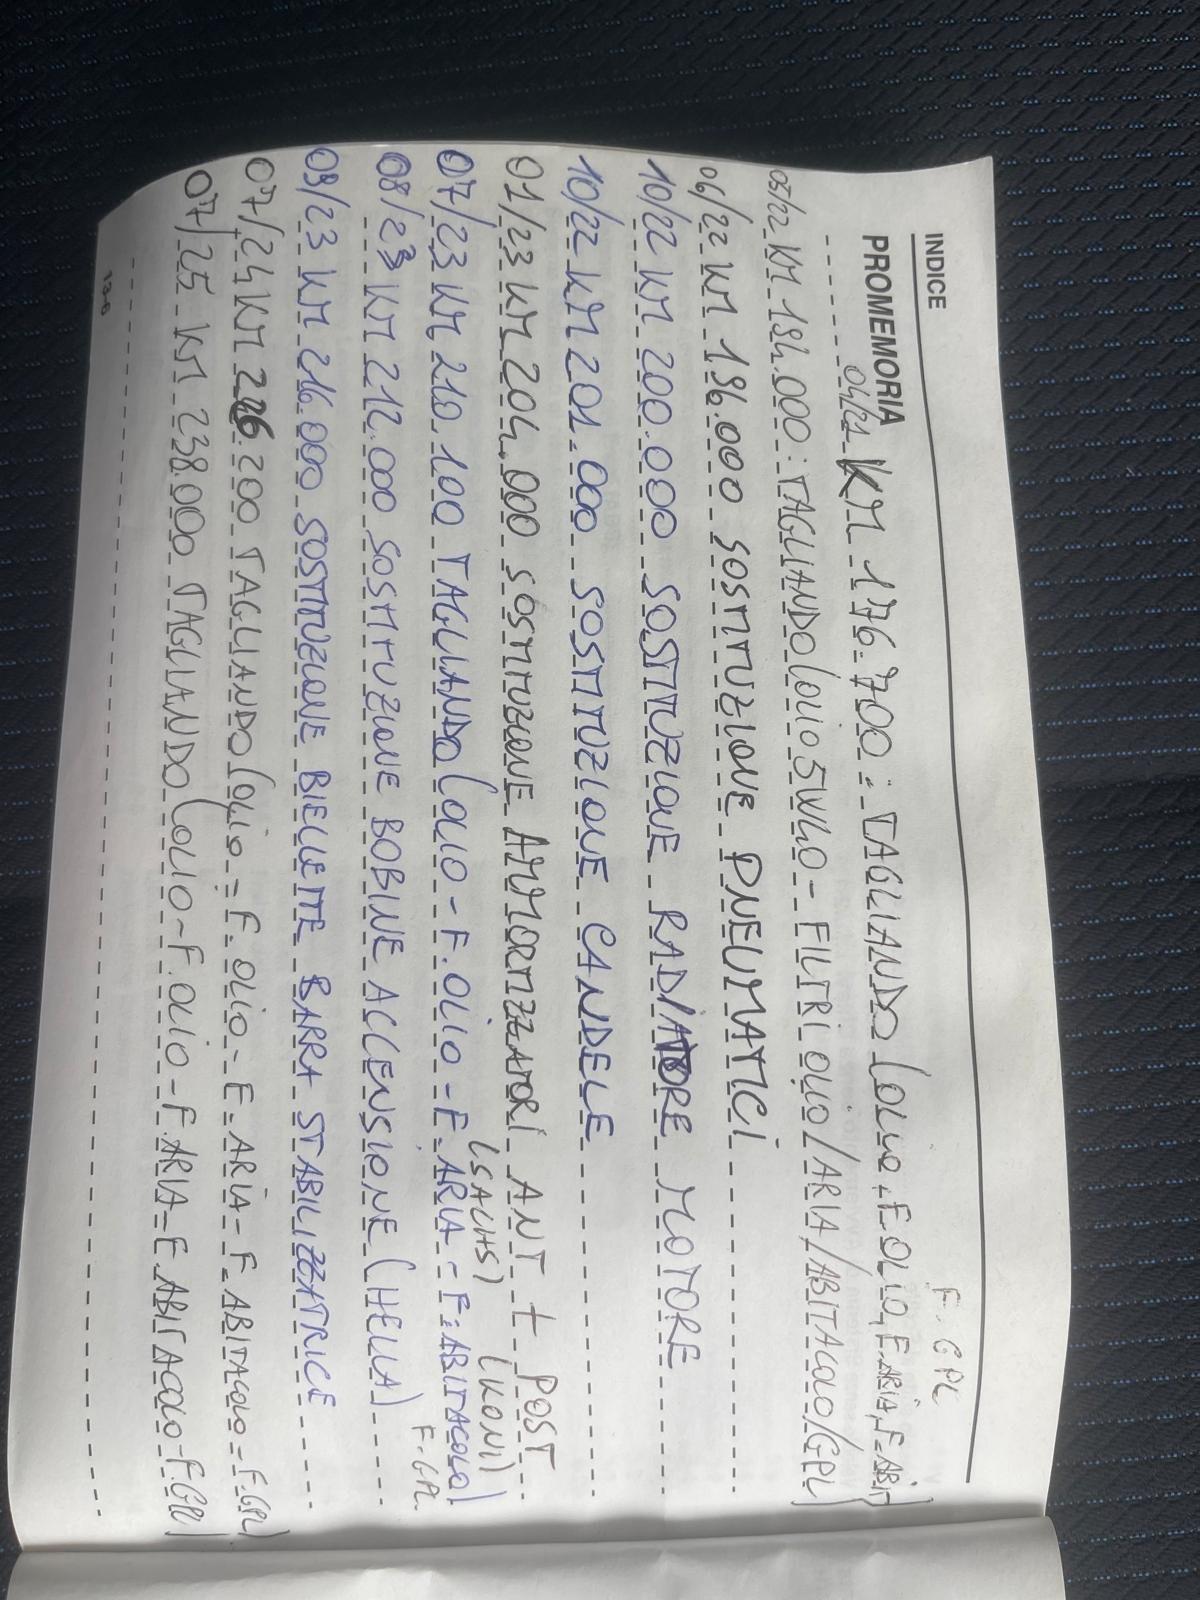 INDICE
F. GPL
PROMEMORIA
04/21 KM 176.700: TAGLIANDO (OLIO, F. OLIO, F. ARIA, F. ABIT)
05/22 KM 194.000: TAGLIANDO (OLIO 5W40 - FILTRI OLIO/ARIA/ABITACOLO/GPL)
06/22 KM 196.000 SOSTITUZIONE PNEUMATICI
10/22 KM 200.000 SOSTITUZIONE RADIATORE MOTORE
10/22 KM 201.000 SOSTITUZIONE CANDELE
01/23 KM 204.000 SOSTITUZIONE AMMORTIZZATORI ANT + POST
(SACHS) (KONI)
07/23 KM 210.100 TAGLIANDO (OLIO - F. OLIO - F. ARIA - F. ABITACOLO)
F. GPL
08/23 KM 212.000 SOSTITUZIONE BOBINE ACCENSIONE (HELLA)
09/23 KM 216.000 SOSTITUZIONE BIELLETTE BARRA STABILIZZATRICE
07/24 KM 226.200 TAGLIANDO (OLIO - F. OLIO - F. ARIA - F. ABITACOLO - F. GPL)
07/25 KM 238.000 TAGLIANDO (OLIO - F. OLIO - F. ARIA - F. ABITACOLO - F. GPL)
13-6